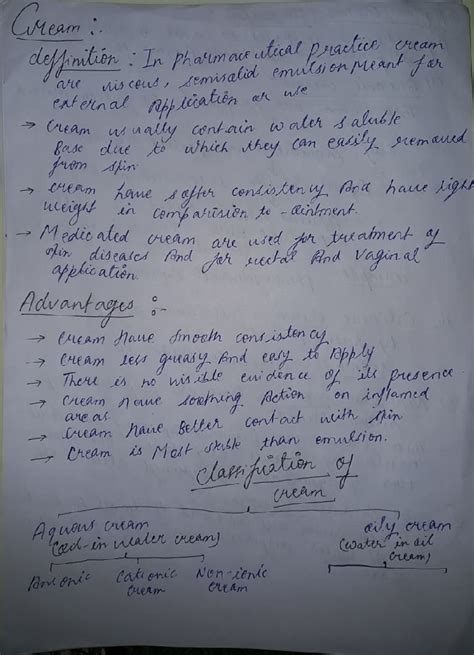 Cream :-
deffinition : In pharmaceutical practice cream
are viscous, semisolid emulsion Meant for
external Application or use
→ Cream usually contain water saluble
Base due to which they can easily removed
from spin
→ cream have softer consistency And have light
weight in comparision to -ointment.
→ Medicated cream are used for treatment of
spin diseases And for rectal And Vaginal
application.
Advantages :-
→ cream have smooth consistency
→ cream less greasy And easy to Apply
→ There is no visible evidence of its presence
→ cream have soothing Action on inflamed
areas.
→ Cream have Better contact with spin
→ Cream is Most stable than emulsion.
Classification of
cream
Aquous cream oily cream
(oil-in water cream) (water in oil
cream)
Anionic Cationic Non-ionic
cream cream